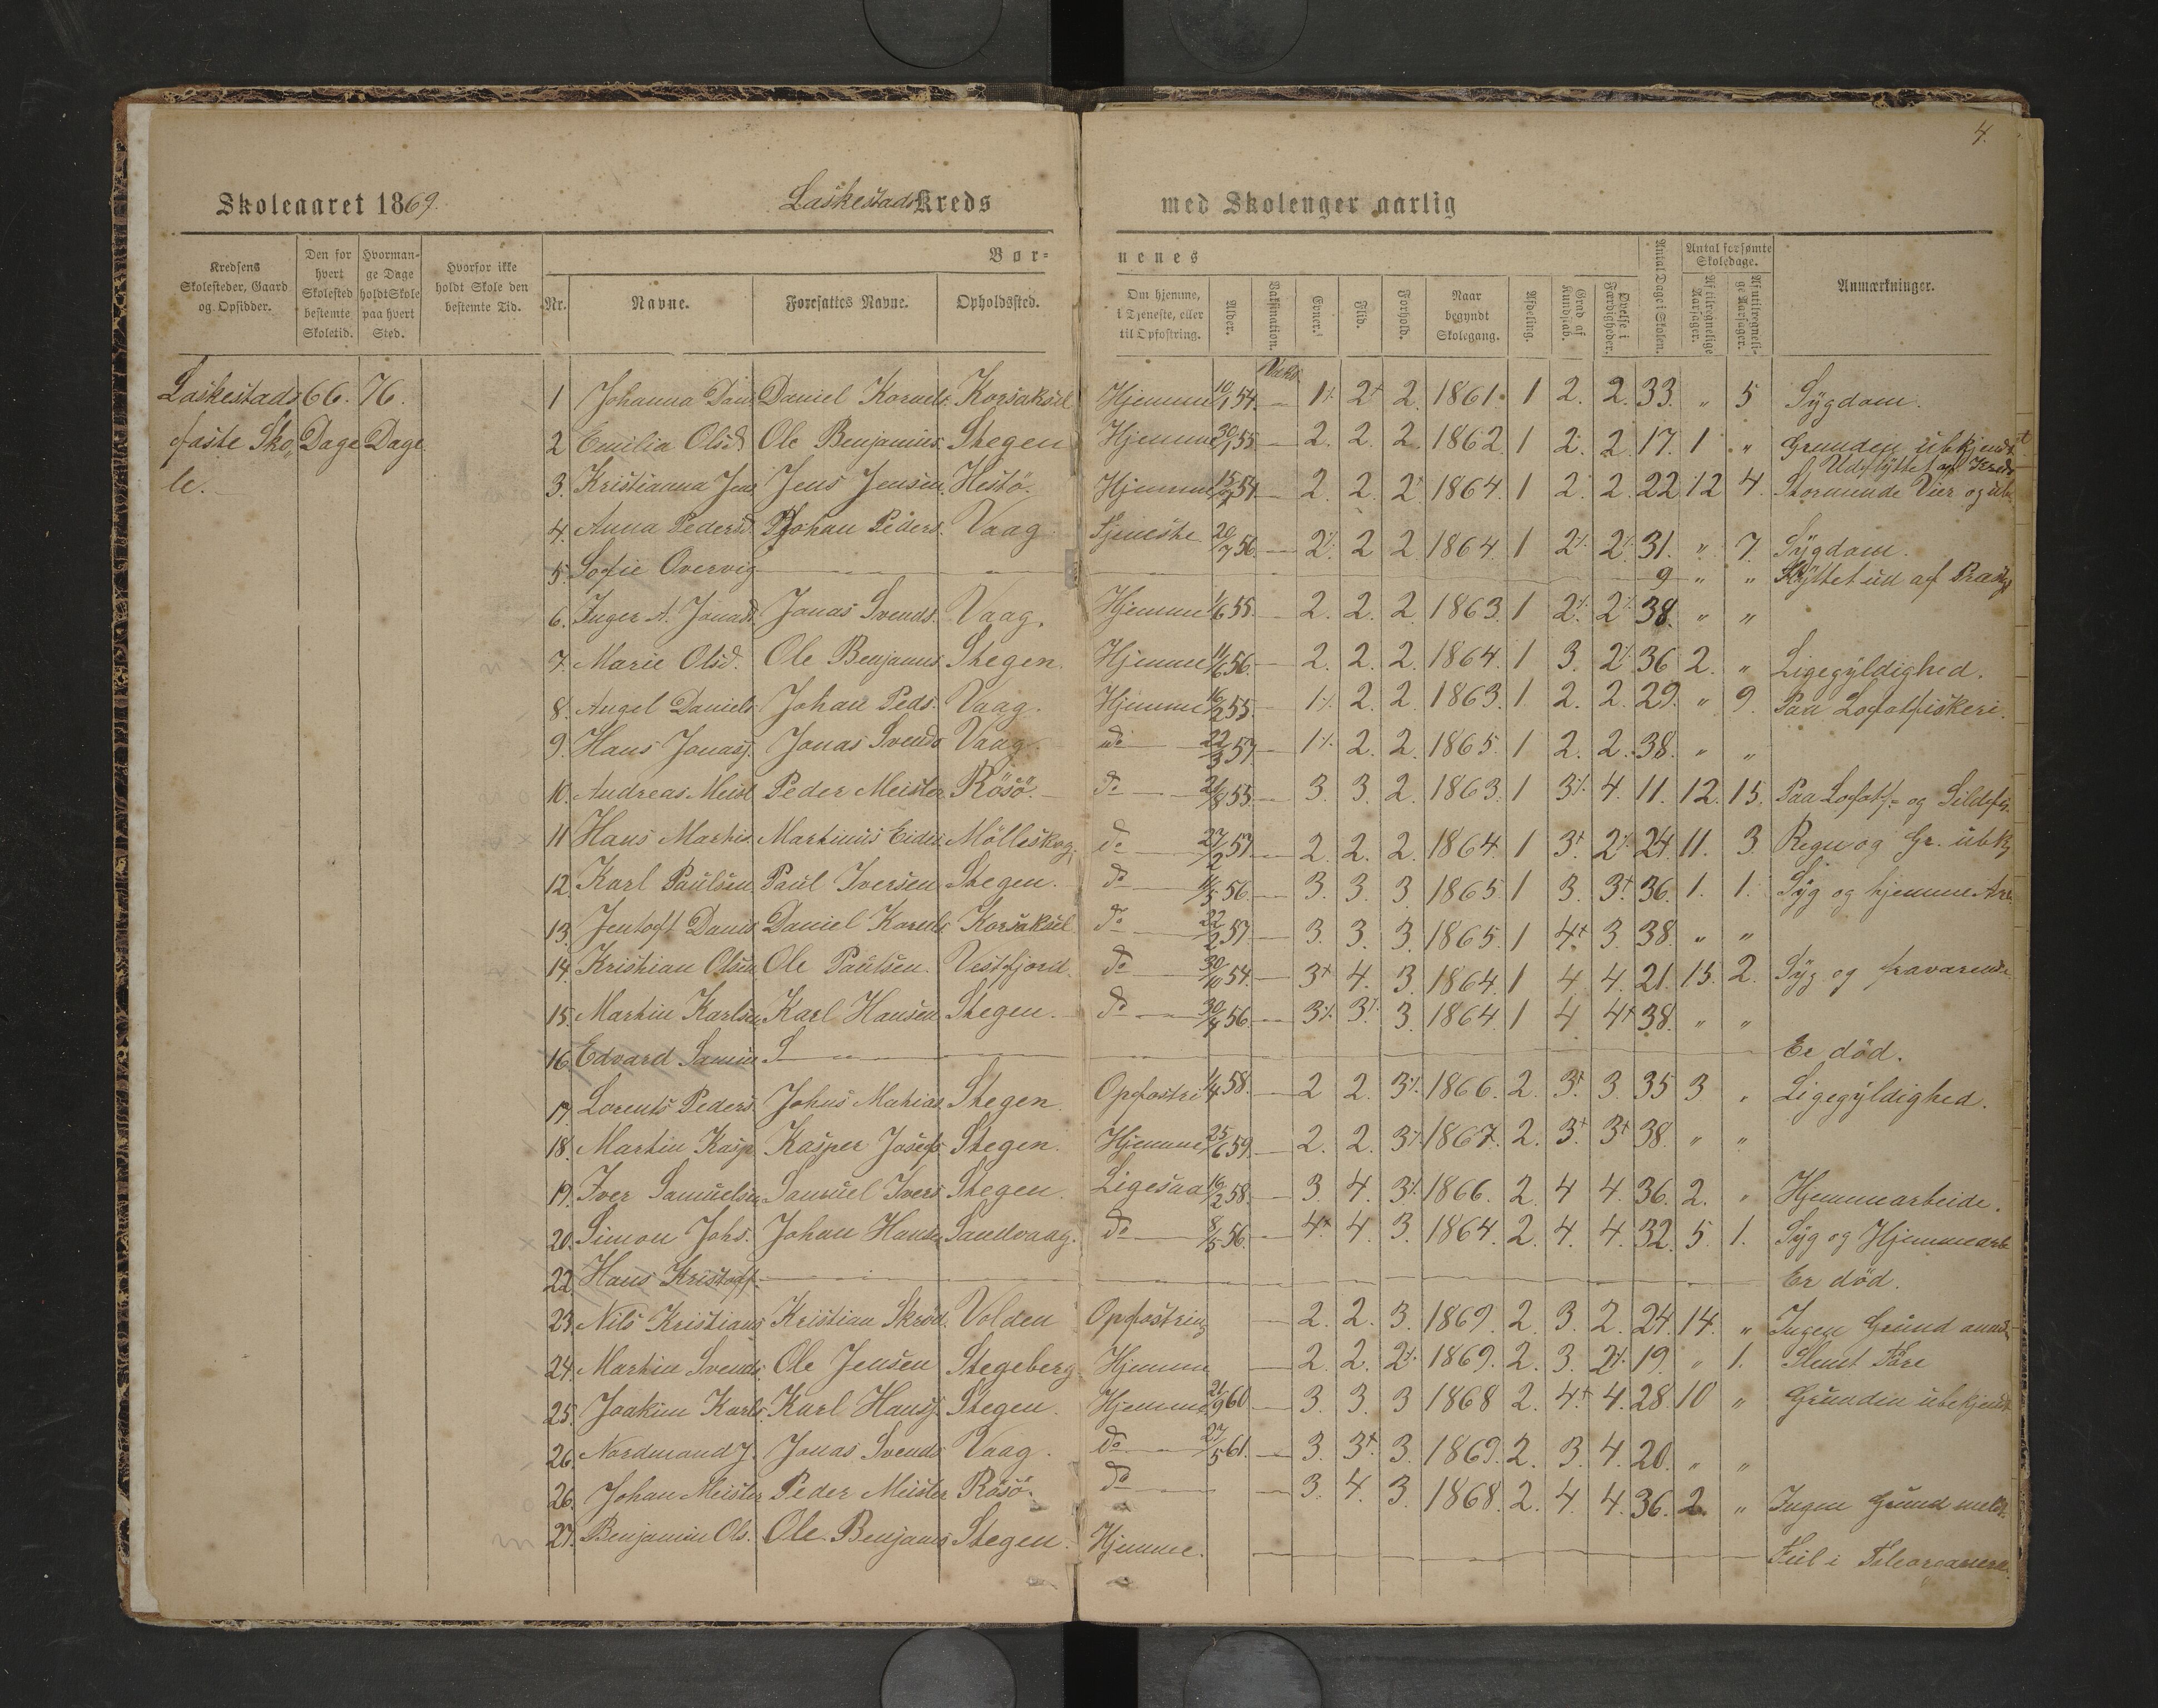 4.
Skoleaaret 1869. Laskestads Kreds med Skolenger aarlig
Kredsens Skolesteder, Gaard og Opsidder.
Den for hvert Skolested bestemte Skoletid.
Hvormange Dage holdt Skole paa hvert Sted.
Hvorfor ikke holdt Skole den bestemte Tid.
Bør- nenes
Nr. Navne. Foresattes Navne. Opholdssted.
Om hjemme, i Tjeneste, eller til Opfostring.
Alder. Vaksination. Evner. Flid. Forhold.
Naar begyndt Skolegang.
Afdeling. Grad af Kundskab. Øvelse i Færdigheder. Antal Dage i Skolen.
Antal forsømte Skoledage.
Af tilregnelige Aarsager. Af utilregnelige Aarsager.
Anmærkninger.
Laskestads 66. 76.
faste Sko, Dage Dage
le.
Vakc
1 Johanna Dan Daniel Kornels. Korsaksel Hjemme 10/1 54. — 1⁒ 2+ 2. 1861. 1 2. 2. 33. " 5 Sygdom.
2 Emilia Olsd. Ole Benjamins. Stegen Hjemme 30/1 55 — 2. 2. 2. 1862. 1 2. 2. 17. 1 " Grunden ubekjendt
Udflyttet af Kreds
3. Kristianna Jens Jens Jensen. Hestö. Hjemme 15/7 54 — 2. 2. 2. 1864. 1 2. 2. 22 12 4. Stormende Veir og ub.
4. Anna Pedersd. Johan Peders. Vaag. Tjeneste 20/7 56 — 2⁒ 2 2 1864. 1 2⁒ 2⁒ 31. " 7. Sygdom.
5. Sofie Overvig — 9 " " Flyttet ud af Præstgj
6. Inger A. Jonasd. Jonas Svends. Vaag. Hjemme 1/6 55. — 2. 2. 2. 1863. 1 2⁒ 2⁒ 38. " "
7. Marie Olsd. Ole Benjamins Stegen. Hjemme 11/6 56. — 2. 2. 2. 1864. 1 3. 2⁒ 36 2. " Ligegyldighed.
8. Angel Daniels. Johan Peds. Vaag. Hjemme 16/2 55. — 1⁒ 2. 2. 1863. 1 2. 2. 29. " 9. Paa Lofotfiskeri.
9. Hans Jonasj. Jonas Svends Vaag. do — 22/3 57. — 1⁒ 2. 2. 1865. 1 2. 2. 38. " "
10. Andreas Meist Peder Meister Rösö. — do — 21/8 55. — 3. 3. 2. 1863. 1 3⁒ 4. 11. 12. 15. Paa Lofotf- og Sildefis.
11 Hans Martin. Martinus Eider. Mölleskog. do — 27/2 57. — 2. 2. 2. 1864. 1 3+ 2⁒ 24. 11. 3. Regn og Gr. ubkj
12. Karl Paulsen Paul Iversen Stegen. do — 11/5 56. — 3. 3. 3. 1865. 1 3. 3+ 36. 1. 1. Syg og hjemme Arb.
13. Jentoft Danis Daniel Kornels Korsaksel do — 22/2 57. — 3. 3. 3. 1865. 1 4+ 3. 38. " "
14. Kristian Olsen Ole Paulsen. Vestfjord. do — 30/10 54. — 3+ 4. 3. 1864. 1 4. 4. 21. 15. 2. Syg og fraværende
15. Martin Karlsen Karl Hansen Stegen. do — 30/7 56. — 3⁒ 3⁒ 3. 1864. 1 4. 4+ 38. " "
16. Edvard Samue S — Er död.
17. Lorents Peders. Johns Mathias. Stegen. Opfostri 1/4 58. — 2 2. 3⁒ 1866. 2. 3+ 3. 35 3 " Ligegyldighed.
18. Martin Kasp Kasper Josefs Stegen. Hjemme 25/6 59. — 2. 2. 3⁒ 1867. 2. 3+ 3+ 38. " "
19. Iver Samuelsen Samuel Ivers. Stegen. Ligesaa 16/2 58. — 3. 4. 3⁒ 1866. 2. 4 4. 36. 2. " Hjemmearbeide.
20. Simon Johs. Johan Hansen Sandvaag. do — 8/5 56. — 4+ 4. 3. 1864. 2. 4. 4. 32. 5. 1. Syg og Hjemmearb
22. Hans Kristoff. — Er död.
23. Nils Kristians Kristian Skröd. Volden Opfostring — 2. 2. 3. 1869. 2. 3. 2. 24. 14. " Ingen Grund anmel
24. Martin Svends. Ole Jensen Stegeberg. Hjemme — 2. 2. 2⁒ 1869. 2. 3. 2⁒ 19. " 1. Slemt Före
25. Joakim Karls. Karl Hansj. Stegen. Hjemme 21/9 60. — 3. 3. 3 1868 2. 4+ 4. 28. 10 " Grunden ubekjendt
26. Nordmand J. Jonas Svends Vaag. do — 27/5 61. — 3. 3+ 3. 1869. 2. 3. 4. 20. " "
26. Johan Meister Peder Meister Rösö. do — 3. 4. 3. 1868. 2. 4. 4. 36. 2. " Ingen Grund meldt.
27. Benjamin Ols. Ole Benjams Stegen. Hjemme. — Feil i